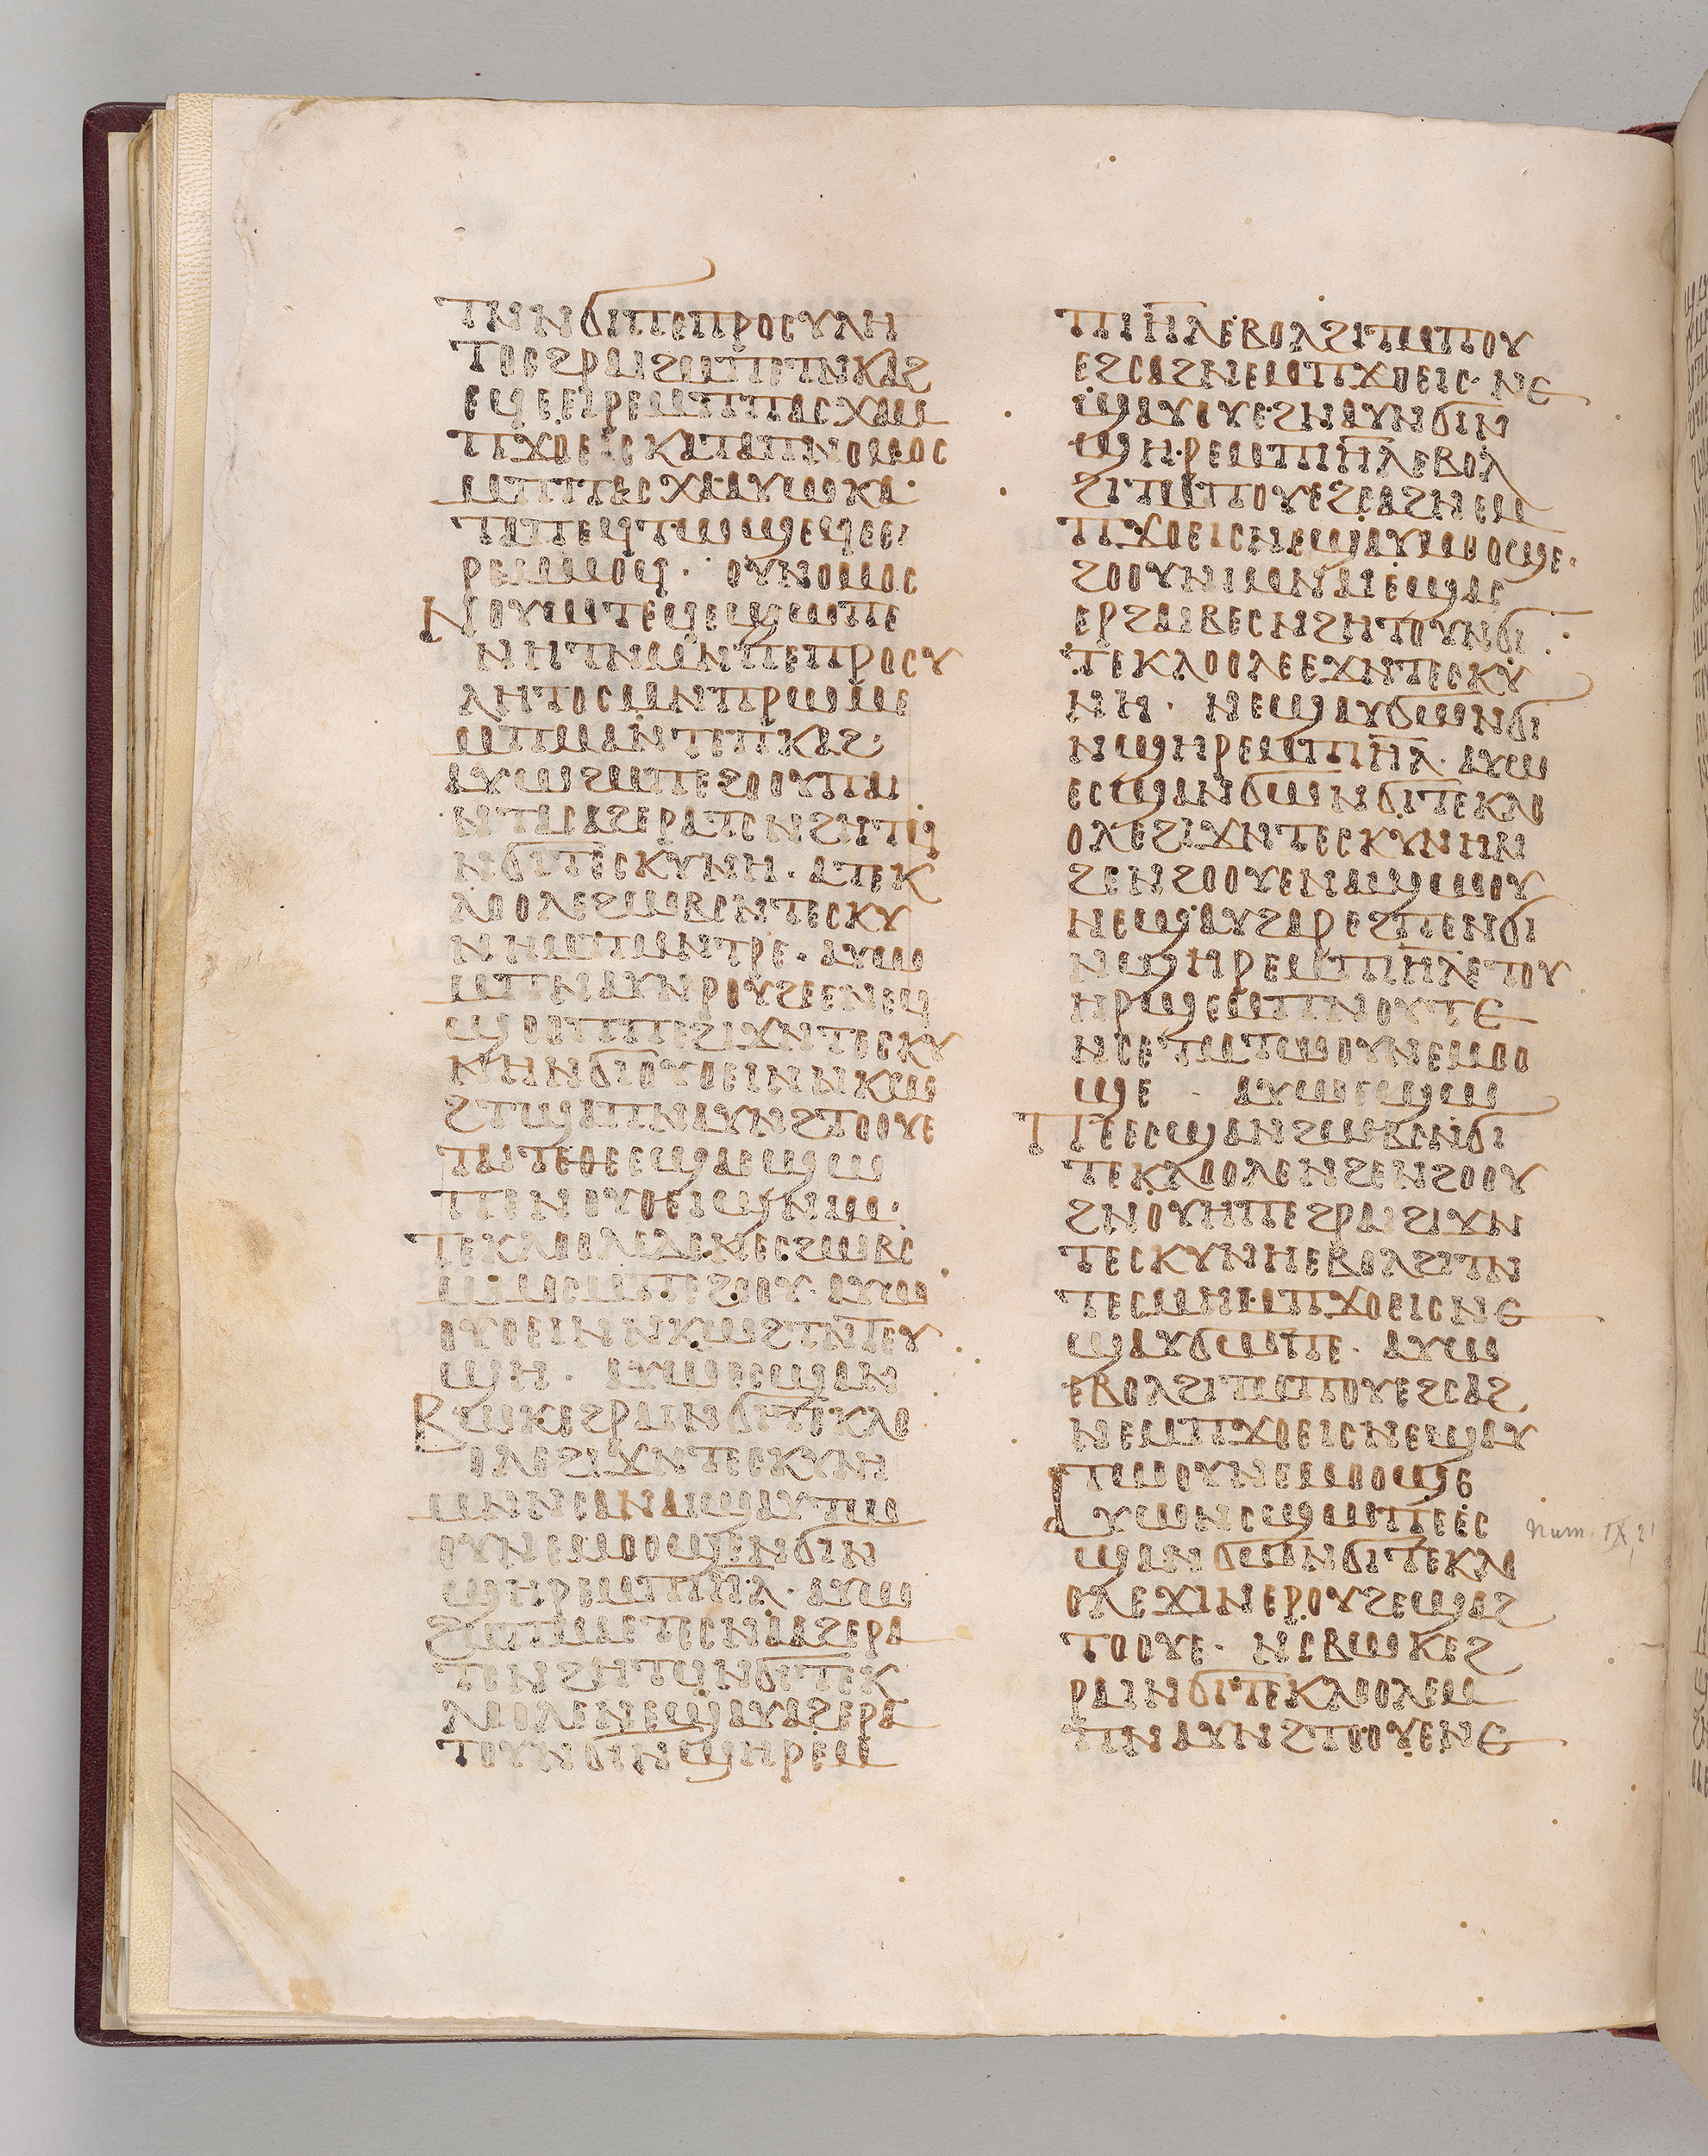 ⲧⲛⲛϭⲓⲡⲉⲡⲣⲟⲥⲩⲗⲏ
ⲧⲟⲥϩⲣⲁⲓϩⲙⲡⲉⲧⲛⲕⲁϩ
ⲉϥⲉⲉⲓⲣⲉⲙⲡⲡⲁⲥⲭⲁⲙ
ⲡϫⲟⲉⲓⲥⲕⲁⲧⲁⲡⲛⲟⲙⲟⲥ
ⲙⲡⲡⲁⲥⲭⲁ·ⲁⲩⲱⲕⲁ
ⲧⲁⲡⲉϥⲧⲱϣⲉϥⲉⲉⲓ
ⲣⲉⲙⲙⲟϥ· ⲟⲩⲛⲟⲙⲟⲥ
ⲛⲟⲩⲱⲧⲉϥⲉϣⲱⲡⲉ
ⲛⲏⲧⲛⲙⲛⲡⲉⲡⲣⲟⲥⲩ
ⲗⲏⲧⲟⲥⲙⲛⲡⲣⲱⲙⲉ
ⲙⲡⲙⲁⲛⲧⲉⲡⲕⲁϩ·
ⲁⲩⲱϩⲙⲡⲉϩⲟⲟⲩⲡⲁⲓ
ⲛⲧⲁⲥⲁϩⲉⲣⲁⲧⲥⲛϩⲏⲧϥ
ⲛϭⲓⲧⲉⲥⲕⲩⲛⲏ· ⲁⲧⲉⲕ
ⲗⲟⲟⲗⲉϩⲱⲃⲥⲛⲧⲉⲥⲕⲩ
ⲛⲏⲙⲡⲙⲛⲧⲣⲉ· ⲁⲩⲱ
ⲙⲡⲛⲁⲩⲛⲣⲟⲩϩⲉⲛⲉϥ
ϣⲟⲟⲡⲡⲉϩⲓϫⲛⲧⲉⲥⲕⲩ
ⲛⲏⲛϭⲓⲟⲩⲟⲉⲓⲛⲛⲕⲱ
ϩⲧϣⲁⲡⲛⲁⲩⲛϩⲧⲟⲟⲩⲉ
ⲧⲁⲓⲧⲉⲑⲉⲉϣⲁⲥϣⲱ
ⲡⲉⲛⲟⲩⲟⲉⲓϣⲛⲓⲙ·
ⲧⲉⲕⲗⲟⲟⲗⲉⲇⲉⲛⲉⲥϩⲱⲃⲥ
ⲙⲙⲟⲥⲙⲡⲉϩⲟⲟⲩ· ⲁⲩⲱ
ⲟⲩⲟⲉⲓⲛⲛⲕⲱϩⲧⲛⲧⲉⲩ
ϣⲏ· ⲁⲩⲱⲉⲥϣⲁⲛ
ⲃⲱⲕⲉϩⲣⲁⲓⲛϭⲓⲧⲉⲕⲗⲟ
ⲟⲗⲉϩⲓϫⲛⲧⲉⲥⲕⲩⲛⲏ
ⲙⲛⲛⲥⲁⲛⲁⲓϣⲁⲩⲧⲱ
ⲟⲩⲛⲉⲙⲟⲟϣⲉⲛϭⲓⲛ
ϣⲏⲣⲉⲙⲡⲓⲏⲗ· ⲁⲩⲱ
ϩⲙⲡⲙⲁⲉⲧⲉⲥⲛⲁⲁϩⲉⲣⲁ
ⲧⲥⲛϩⲏⲧϥⲛϭⲓⲧⲉⲕ
ⲗⲟⲟⲗⲉⲛⲉϣⲁⲩⲁϩⲉⲣⲁ
ⲧⲟⲩⲛϭⲓⲛϣⲏⲣⲉⲙ
ⲡⲓⲏⲗⲉⲃⲟⲗϩⲓⲧⲙⲡⲟⲩ
ⲉϩⲥⲁϩⲛⲉⲙⲡϫⲟⲉⲓⲥ· ⲛⲉ
ϣⲁⲩⲟⲩⲉϩⲛⲁⲩⲛϭⲓⲛ
ϣⲏⲣⲉⲙⲡⲓⲏⲗⲉⲃⲟⲗ
ϩⲓⲧⲙⲡⲟⲩⲉϩⲥⲁϩⲛⲉⲙ
ⲡϫⲟⲉⲓⲥⲛⲉϣⲁⲩⲙⲟⲟϣⲉ·
ϩⲟⲟⲩⲛⲓⲙⲛⲁⲓⲉϣⲁⲥ
ⲉⲣϩⲁⲓⲃⲉⲥⲛϩⲏⲧⲟⲩⲛϭⲓ
ⲧⲉⲕⲗⲟⲟⲗⲉⲉϫⲛⲧⲉⲥⲕⲩ
ⲛⲏ· ⲛⲉϣⲁⲩϭⲱⲛϭⲓ
ⲛϣⲏⲣⲉⲙⲡⲓⲏⲗ· ⲁⲩⲱ
ⲉⲥϣⲁⲛϭⲱⲛϭⲓⲧⲉⲕⲗⲟ
ⲟⲗⲉϩⲓϫⲛⲧⲉⲥⲕⲩⲛⲏⲛ
ϩⲉⲛϩⲟⲟⲩⲉⲛⲁϣⲱⲟⲩ
ⲛⲉϣⲁⲩϩⲁⲣⲉϩⲡⲉⲛϭⲓ
ⲛϣⲏⲣⲉⲙⲡⲓⲏⲗⲉⲧⲟⲩ
ⲏⲣϣⲉⲙⲡⲛⲟⲩⲧⲉ
ⲛⲥⲉⲧⲙⲧⲱⲟⲩⲛⲉⲙⲟⲟ
ϣⲉ· ⲁⲩⲱⲉϣⲱ
ⲡⲉⲉⲥϣⲁⲛϩⲱⲃⲥⲛϭⲓ
ⲧⲉⲕⲗⲟⲟⲗⲉⲛϩⲉⲛϩⲟⲟⲩ
ϩⲛⲟⲩⲏⲡⲉϩⲣⲁⲓϩⲓϫⲛ
ⲧⲉⲥⲕⲩⲛⲏⲉⲃⲟⲗϩⲓⲧⲛ
ⲧⲉⲥⲙⲏ·ⲙⲡϫⲟⲉⲓⲥⲛⲉ
ϣⲁⲩϭⲱⲡⲉ· ⲁⲩⲱ
ⲉⲃⲟⲗϩⲓⲧⲙⲡⲟⲩⲉϩⲥⲁϩ
ⲛⲉⲙⲡϫⲟⲉⲓⲥⲛⲉϣⲁⲩ
ⲧⲱⲟⲩⲛⲉⲙⲟⲟϣⲉ
ⲁⲩⲱⲛⲉϣⲱⲡⲉⲉⲥ
ϣⲁⲛϭⲱⲛϭⲓⲧⲉⲕⲗⲟ
ⲟⲗⲉϫⲓⲛⲉⲣⲟⲩϩⲉϣⲁϩ
ⲧⲟⲟⲩⲉ· ⲛⲥⲃⲱⲕⲉϩ
ⲣⲁⲓⲛϭⲓⲧⲉⲕⲗⲟⲟⲗⲉⲙ
ⲡⲛⲁⲩⲛϩⲧⲟⲟⲩⲉⲛⲉ
Num. IX, 21